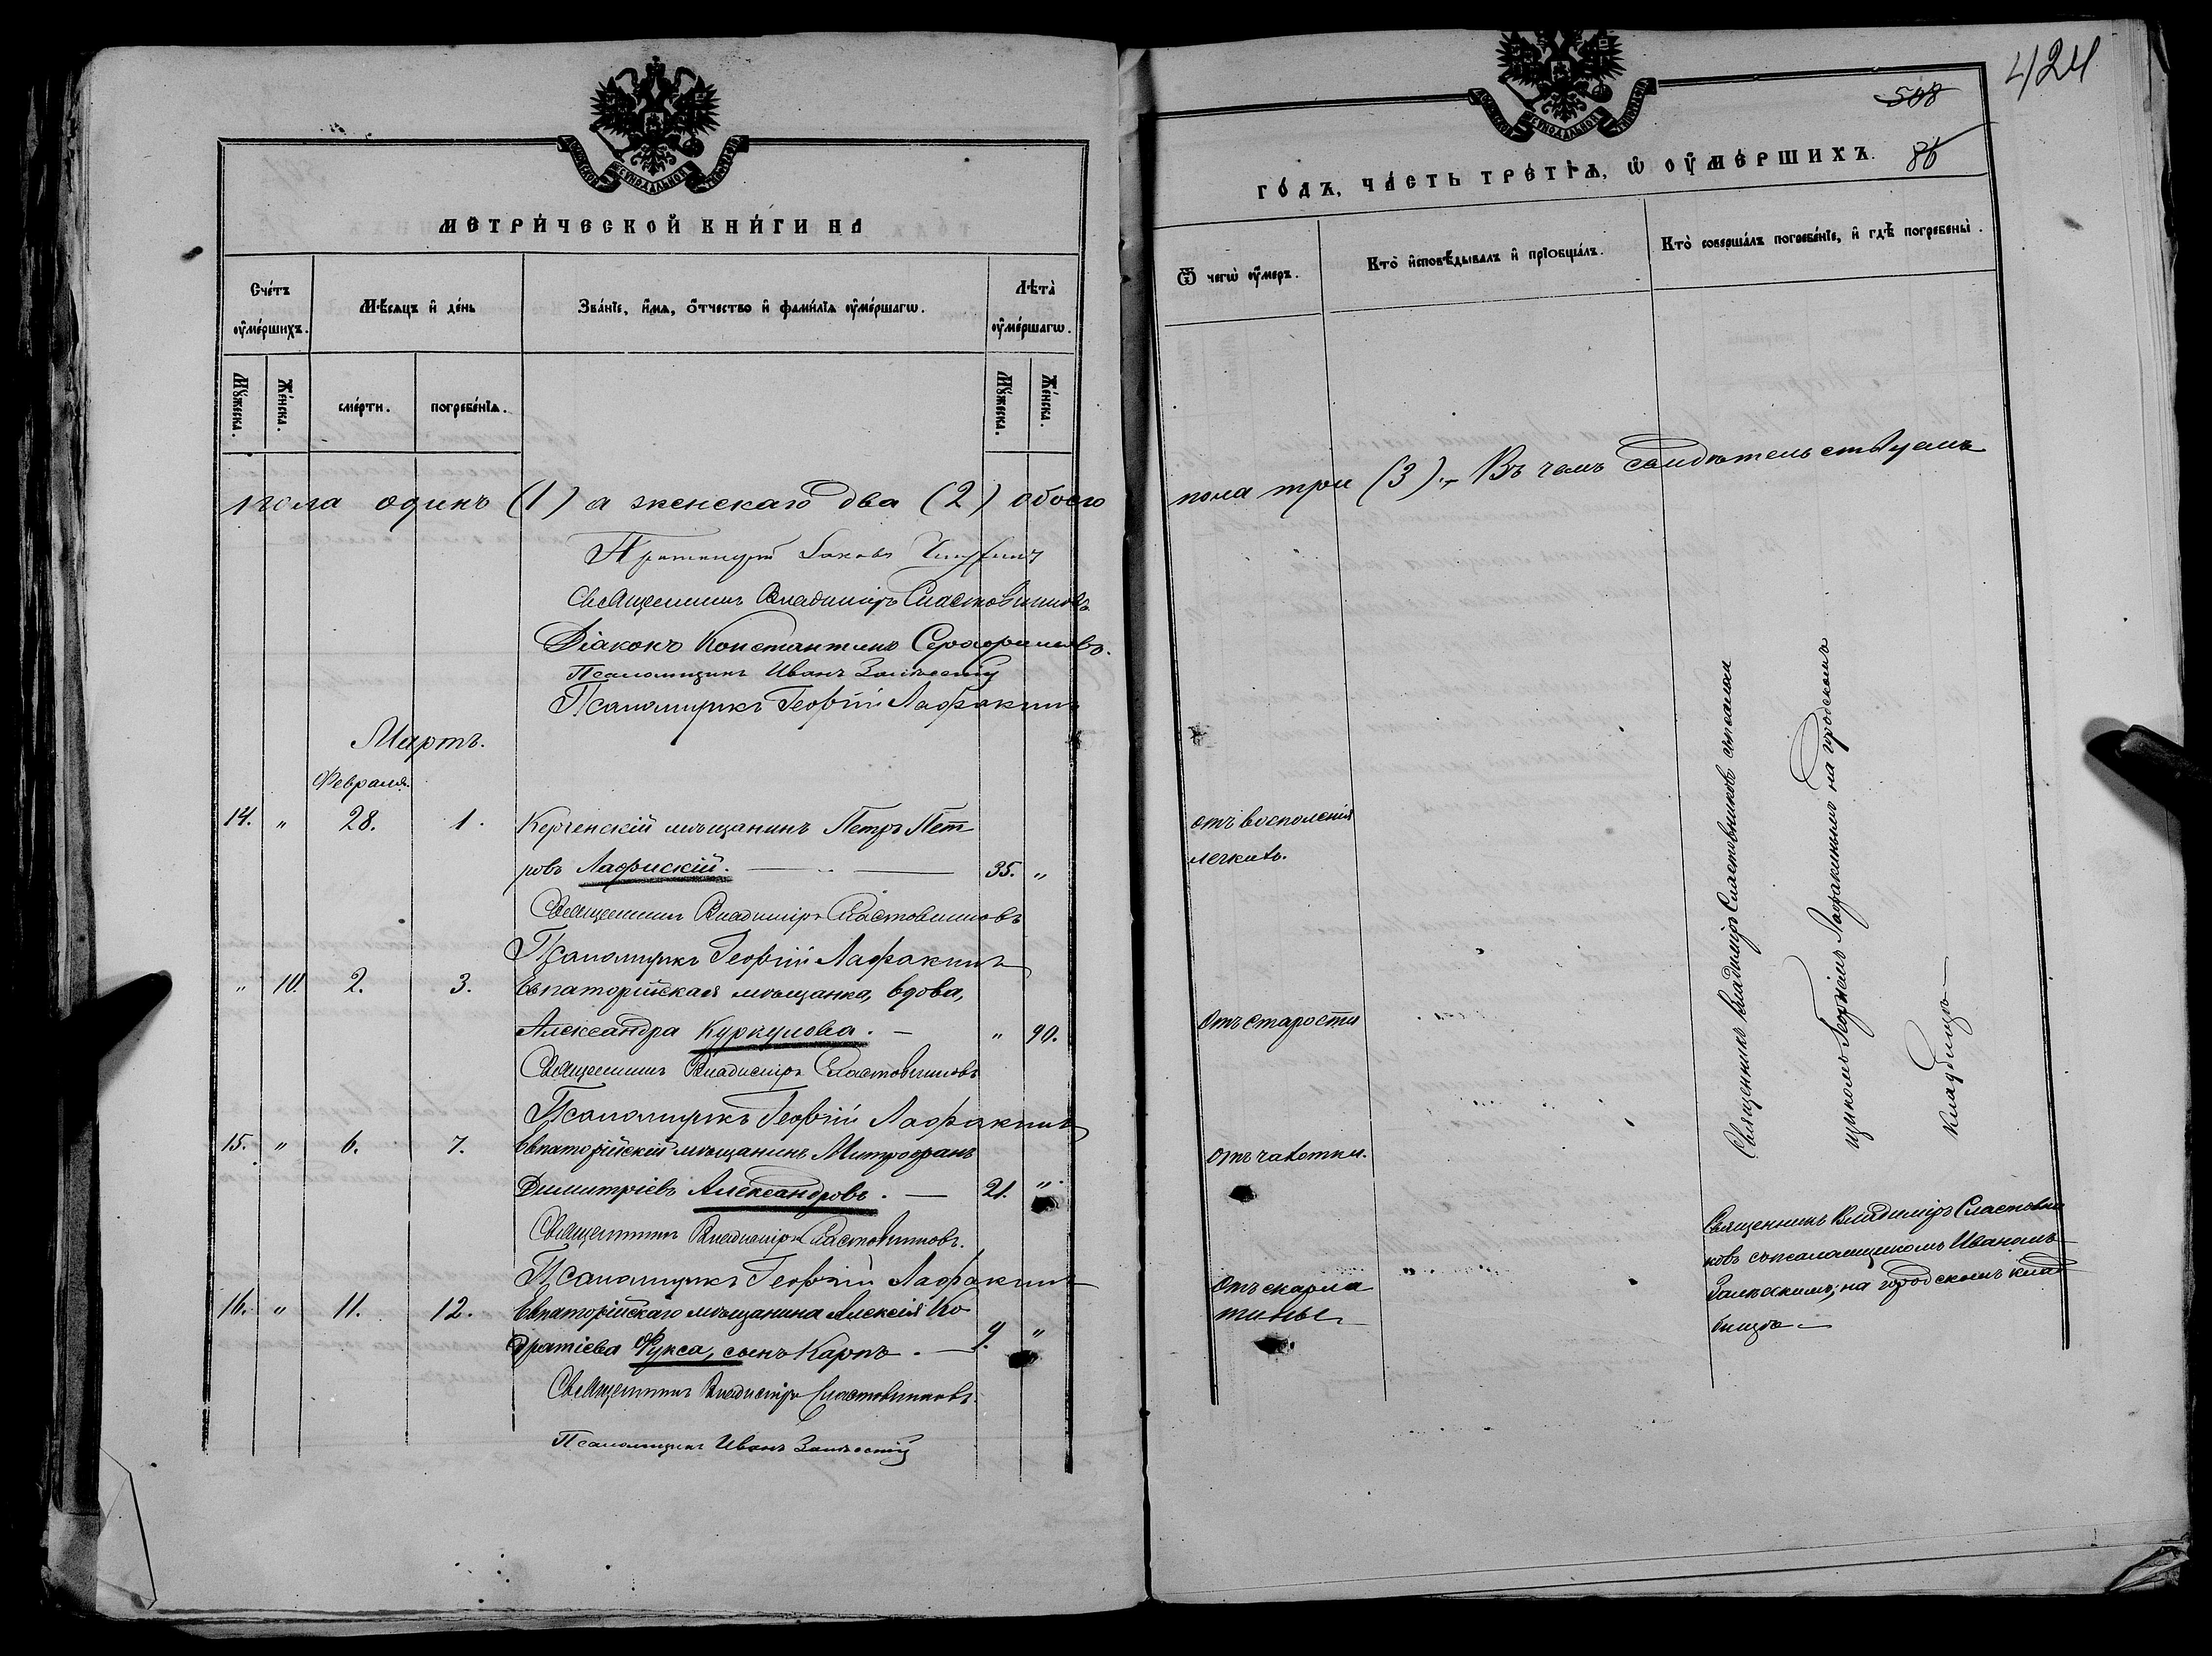 МЕТРИ́ЧЕСКОЙ КНИ́ГИ НА
Сче́тъ ᲂу҆ме́ршихъ.
Мѣ́сяцъ и҆ де́нь
Зва́нїе, и҆́мѧ, ѻ҆́тчество и҆ фами́лїѧ ᲂу҆ме́ршагѡ.
Лѣта̀ ᲂу҆ме́ршагѡ.
Мꙋ́жеска.
Же́нска.
сме́рти.
погребе́нїѧ.
Мꙋ́жеска.
Же́нска.
пола одинъ (1) а женскаго два (2) обоего
Протоіерей Іаковъ
Священникъ Владиміръ Сластовниковъ
Діаконъ Константинъ
Псаломщикъ Иванъ Залѣсскій
Псаломщикъ Георгій Лафакинъ
Мартъ.
Февраля.
14. " 28. 1. Керченскій мѣщанинъ Петръ Пет
ровъ Лафискій. 35. "
Священникъ Владиміръ Сластовниковъ
Псаломщикъ Георгій Лафакинъ
" 10. 2. 3. Евпаторійская мѣщанка, вдова,
Александра Куркулова. " 90.
Священникъ Владиміръ Сластовниковъ
Псаломщикъ Георгій Лафакинъ
15. " 6. 7. Евпаторійскій мѣщанинъ Митрофанъ
Димитріевъ Александровъ. 21. "
Священникъ Владиміръ Сластовниковъ.
Псаломщикъ Георгій Лафакинъ
16. " 11. 12. Евпаторійскаго мѣщанина Алексія Ко
дратіева Фукса, сынъ Карпъ. 9. "
Священникъ Владиміръ Сластовниковъ.
Псаломщикъ Иванъ Залѣсскій
424
508
86
ГО́ДЪ, ЧА́СТЬ ТРЕ́ТЇѦ, Ѡ҆ ОУ҆МЕ́РШИХЪ.
Ѿ чегѡ̀ ᲂу҆́меръ.
Кто̀ и҆сповѣ́дывалъ и҆ прїѡбща́лъ.
Кто̀ соверша́лъ погребе́нїе, и҆ гдѣ̀ погребены̀.
пола три (3). Въ чемъ свидѣтельствуемъ
отъ восполенія
легкихъ.
Отъ старости
отъ чахотки.
Отъ скарла
тины
Священникъ Владиміръ Сластовниковъ съ псалом
щикомъ Георгіемъ Лафакинымъ на городскомъ
кладбищѣ
Священникъ Владиміръ Сластовни
ковъ съ псаломщикомъ Иваномъ
Залѣскимъ, на городскомъ клад
бищѣ